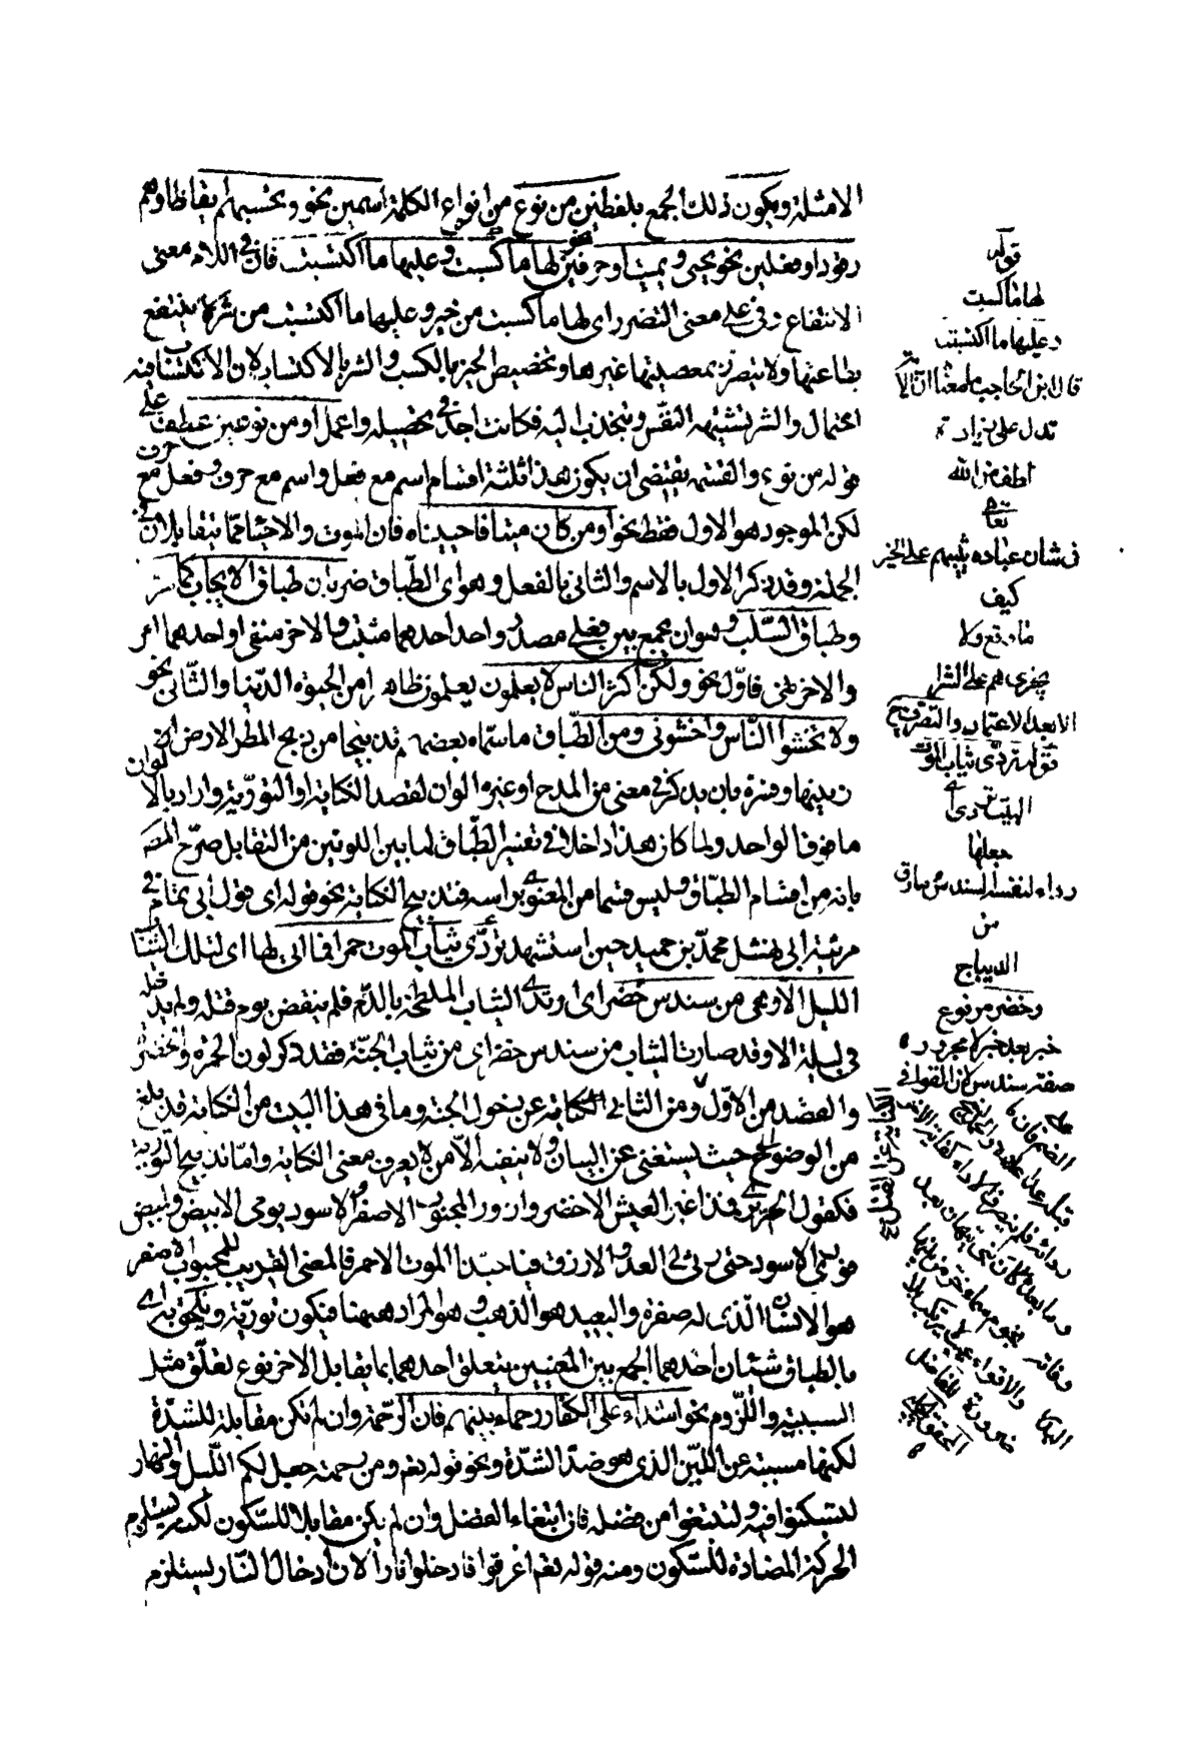 الامثلة ويكون ذلك الجمع بلفظين من نوع من انواع الكلمة اسمين نحو وتحسبهم ايقاظا وهم
رقود او فعلين نحو يحيى ويميت او حرفين نحو لها ما كسبت وعليها ما اكتسبت فان في اللام معنى
الانتفاع وفي على معنى التضرر اى لها ما كسبت من خير وعليها ما اكتسبت من شر لا ينتفع
بطاعتها ولا يتضرر بمعصيتها غيرها وتخصيص الخير بالكسب والشر بالاكتساب لان الاكتساب فيه
اعتمال والشر تشتهيه النفس وتنجذب اليه فكانت اجد في تحصيله واعمل او من نوعين عطف على
قوله من نوع والقسمة يقتضى ان يكون هذا ثلثة اقسام اسم مع فعل واسم مع حرف وفعل مع حرف
لكن الموجود هو الاول فقط نحو او من كان ميتا فاحييناه فان الموت والاحياء مما يتقابلان في
الجملة وقد ذكر الاول بالاسم والثانى بالفعل وهو اى الطباق ضربان طباق الايجاب كما مر
وطباق السلب وهو ان يجمع بين فعلى مصدر واحد احدهما مثبت والاخر منفى او احدهما امر
والاخر نهى فالاول نحو ولكن اكثر الناس لا يعلمون يعلمون ظاهرا من الحيوة الدنيا والثانى نحو
ولا تخشوا الناس واخشونى ومن الطباق ما سماه بعضهم تدبيجا من دبج المطر الارض اى
زينها وفسره بان يذكر في معنى من المدح او غيره الوان لقصد الكناية او التورية واراد بالالوان
ما فوق الواحد ولما كان هذا داخلا في تفسير الطباق لما بين اللونين من التقابل صرح المصـ
بانه من اقسام الطباق وليس قسما من المعنوى براسه فتدبيج الكناية نحو قوله اى قول ابى تمام في
مرثية ابى نهشل محمد بن حميد حين استشهد تردى ثياب الموت حمرا فما اتى لها اى لتلك الثياب
الليل الا وهى من سندس خضر اى ارتدى الثياب الملطخة بالدم فلم ينقض يوم قتله ولم يدخل
في ليلة الا وقد صارت الثياب من سندس خضر اى من ثياب الجنة فقد ذكر لون الحمرة والخضرة
والقصد من الاول الكناية عن القتل ومن الثانى الكناية عن دخول الجنة وما في هذا البيت من الكناية قد بلغ
من الوضوح حيث يستغنى عن البيان ولا ينفيه الا من لا يعرف معنى الكناية واما تدبيج التورية
فكقول الحريرى فمذ اغبر العيش الاخضر وازور المحبوب الاصفر اسود يومى الابيض وابيض
فودى الاسود حتى رثى لى العدو الازرق فيا حبذا الموت الاحمر فالمعنى القريب للمحبوب الاصفر
هو الانسان الذى له صفرة والبعيد هو الذهب وهو المراد ههنا فيكون تورية ويلحق به اى
بالطباق شيئان احدهما الجمع بين المعنيين يتعلق احدهما بما يقابل الاخر نوع تعلق مثل
السببية واللزوم نحو اشداء على الكفار رحماء بينهم فان الرحمة وان لم تكن مقابلة للشدة
لكنها مسببة عن اللين الذى هو ضد الشدة ونحو قوله تعم ومن رحمته جعل لكم الليل والنهار
لتسكنوا فيه ولتبتغوا من فضله فان ابتغاء الفضل وان لم يكن مقابلا للسكون لكنه يستلزم
الحركة المضادة للسكون ومنه قوله تعم اغرقوا فادخلوا نارا لان ادخال النار يستلزم
قوله
لها ما كسبت
وعليها ما اكتسبت
قال ابن الحاجب
تدل على زيادة
لطف من الله
تعا
في شان عباده يثيبهم على الخير
كيف
ما وقع ولا
يجزى هم على الشر
الا بعد الاعتمال والتصرف
قوله تردى ثياب الموت
البيت تردى
جعلها
رداء لنفسه السندس مارق
من
الديباج
وخضر مرفوع
خبر بعد خبر لا مجرور
صفة سندس لان القوافى